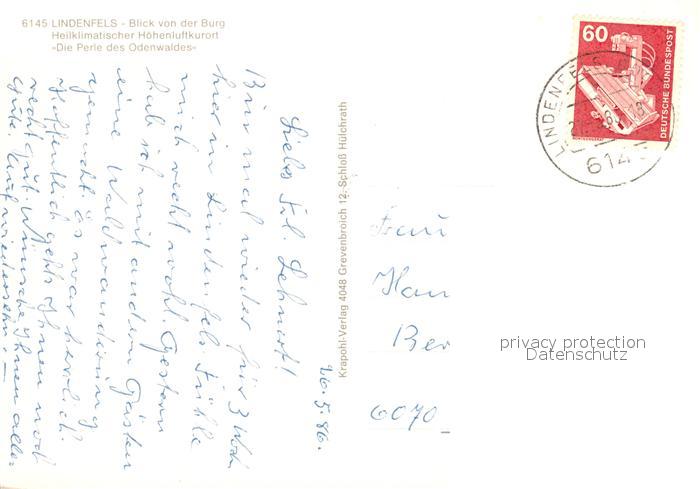 6145 LINDENFELS - Blick von der Burg
Heilklimatischer Höhenluftkurort
»Die Perle des Odenwaldes«
26.5.86.
Liebes Frl. Lehnert!
Bin mal wieder für 3 Woch
hier in Lindenfels. Fühle
mich recht wohl. Gestern
hab ich mit andern Gästen
eine Waldwanderung
gemacht. Es war herrlich.
Hoffentlich gehts Ihnen noch
recht gut. Wünsche Ihnen alles
Gute. Auf wiedersehn. –
Krapohl-Verlag 4048 Grevenbroich 12-Schloß Hülchrath
60
DEUTSCHE BUNDESPOST
LINDENFELS
614
Frau
Han
Ber
6070
privacy protection
Datenschutz